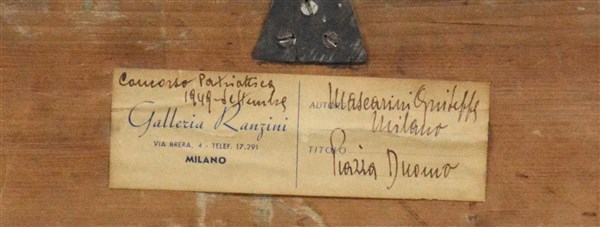 Concorso Patriattica
1949-Settembre
Galleria Ranzini
VIA BRERA, 4 - TELEF. 17.291
MILANO
AUTORE Mascarini Giuseppe
Milano
TITOLO
Piazza Duomo